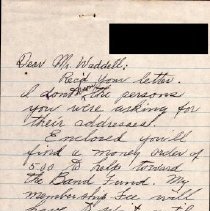 Dear Mr. Waddell:
Rec'd your letter.
I don't know the persons
you were asking for
their addresses.
Enclosed you'll
find a money order of
5.00 to help toward
the Band Fund. My
membership fee will
have to wait till